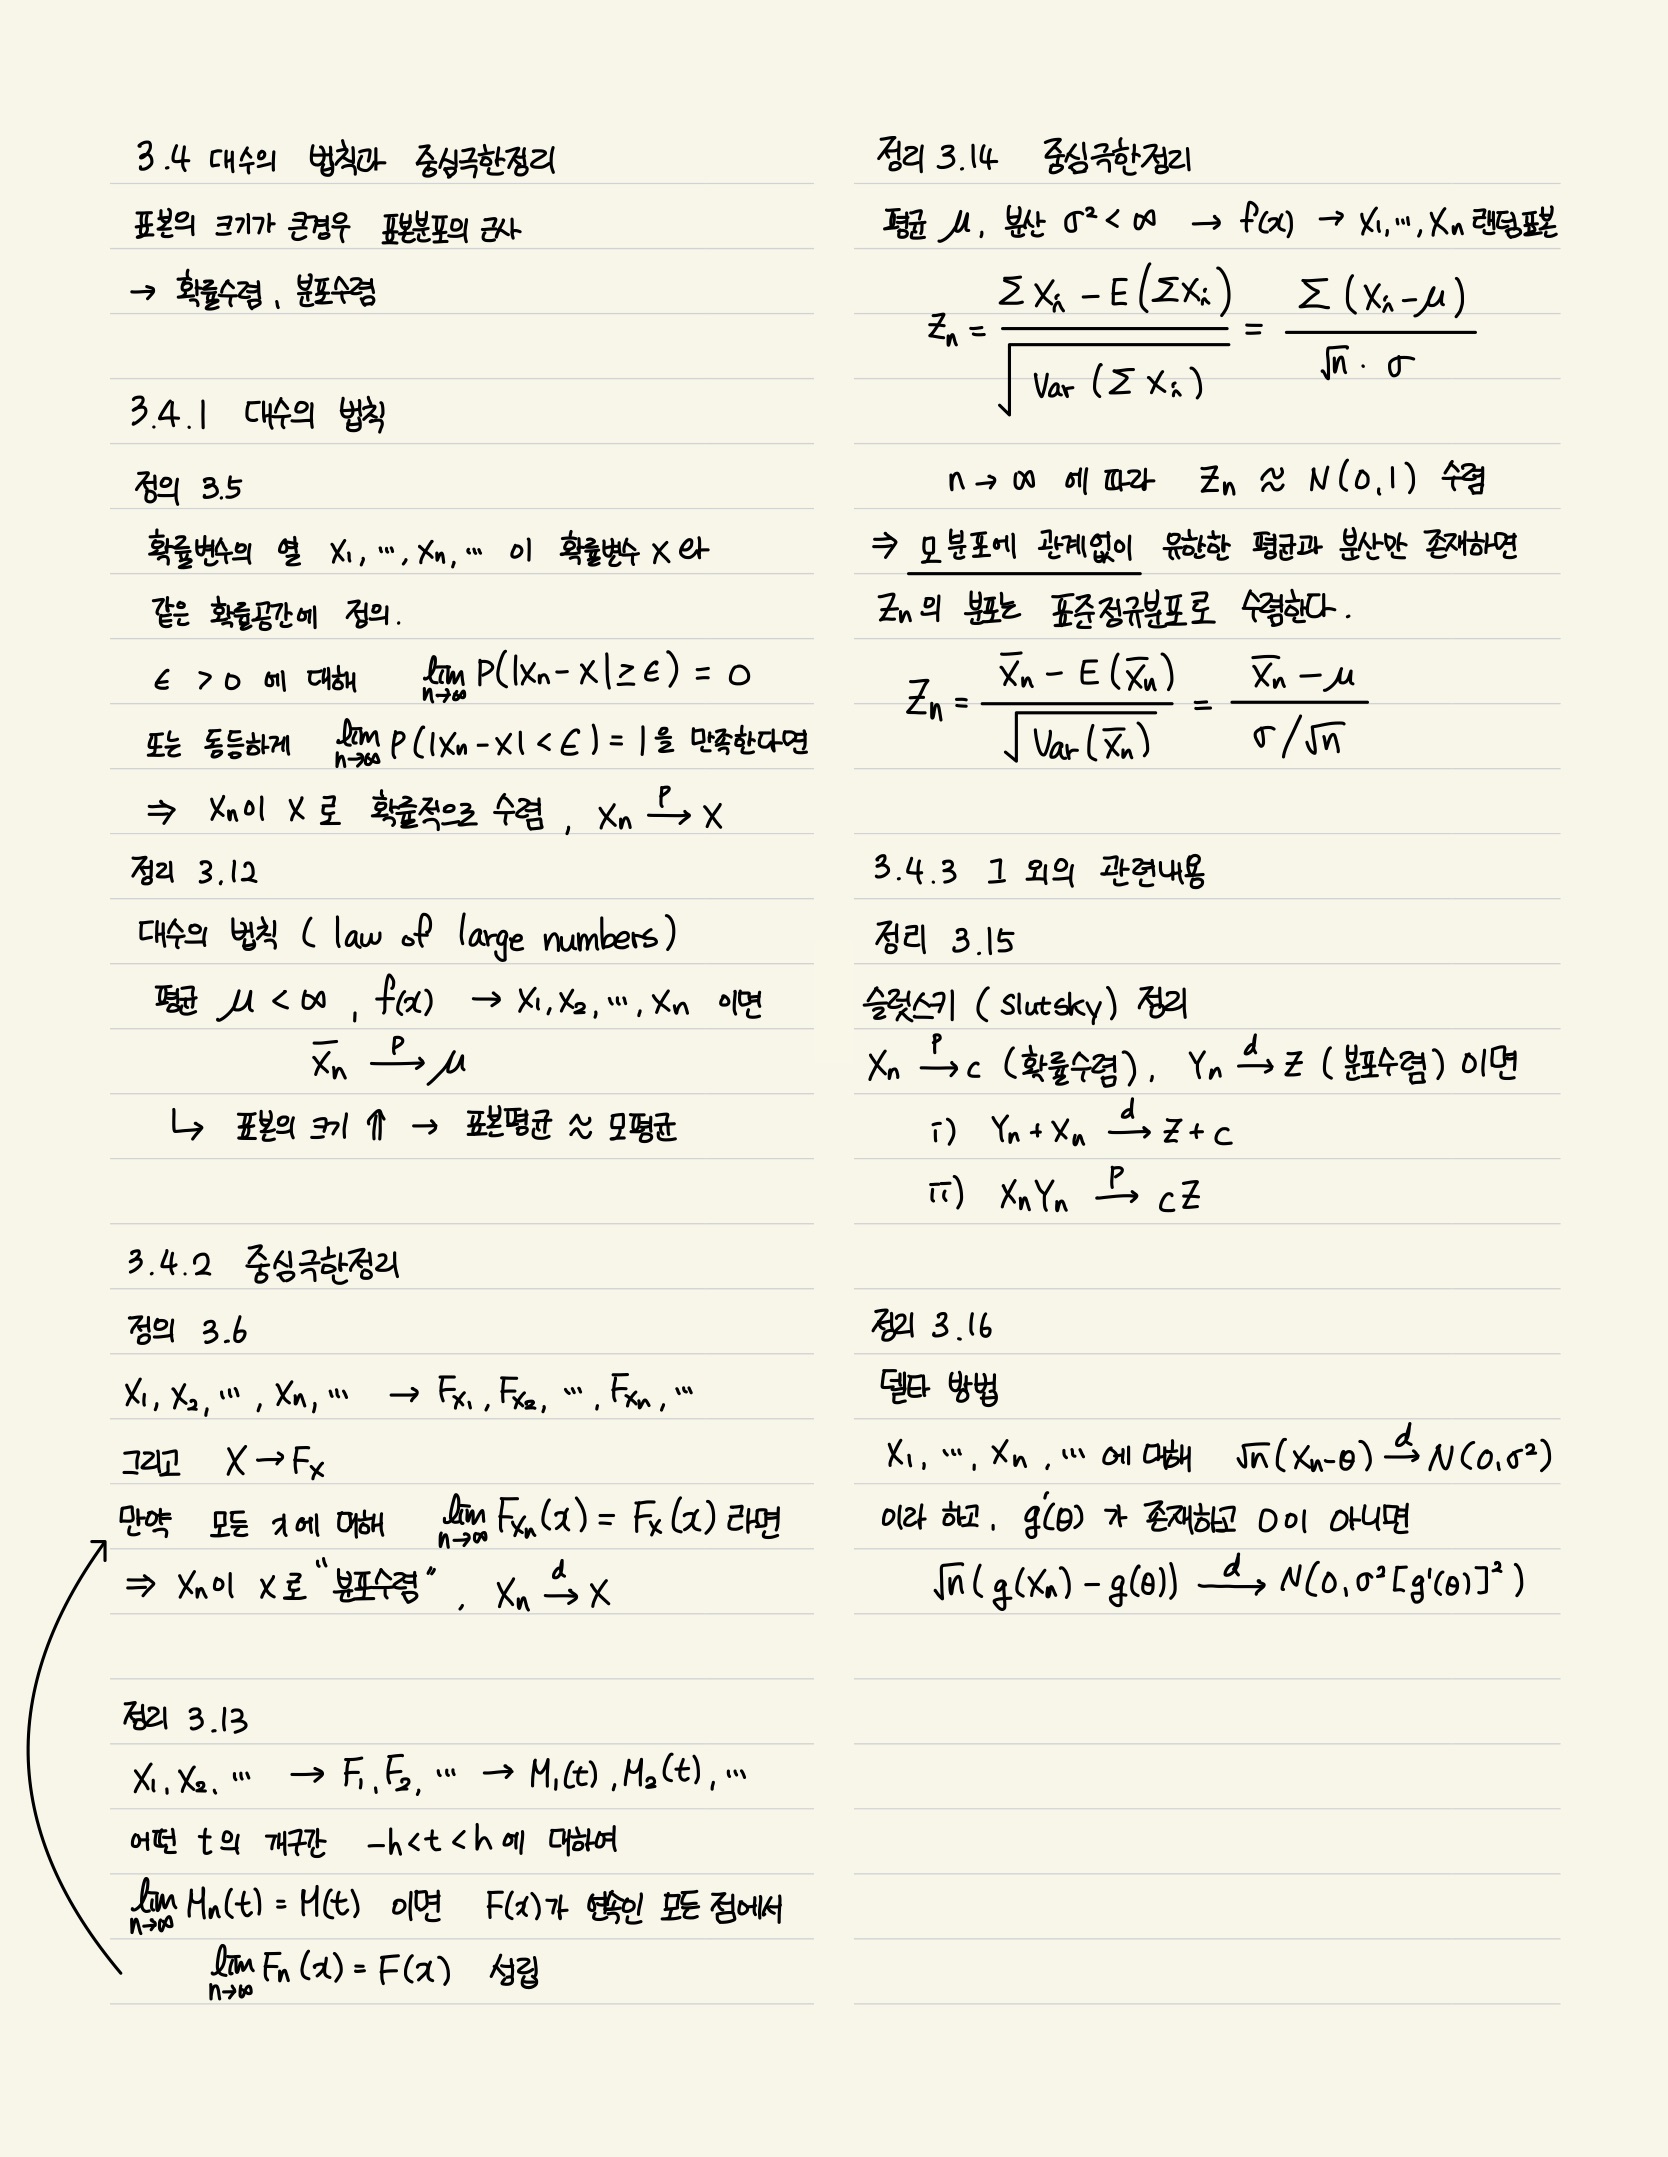 3.4 대수의 법칙과 중심극한정리
표본의 크기가 큰경우 표본분포의 근사
→ 확률수렴, 분포수렴
3.4.1 대수의 법칙
정의 3.5
확률변수의 열 X₁, ⋯, Xₙ, ⋯ 이 확률변수 X 와
같은 확률공간에 정의.
ϵ > 0 에 대해 lim n→∞ P(|Xₙ - X| ≥ ϵ) = 0
또는 동등하게 lim n→∞ P(|Xₙ - X| < ϵ) = 1 을 만족한다면
⇒ Xₙ이 X 로 확률적으로 수렴, Xₙ →ᵖ X
정리 3.12
대수의 법칙 ( law of large numbers )
평균 μ < ∞, f(x) → X₁, X₂, ⋯, Xₙ 이면
X̄ₙ →ᵖ μ
↳ 표본의 크기 ⇑ → 표본평균 ≈ 모평균
3.4.2 중심극한정리
정의 3.6
X₁, X₂, ⋯, Xₙ, ⋯ → F_X₁, F_X₂, ⋯, F_Xₙ, ⋯
그리고 X → F_X
만약 모든 x에 대해 lim n→∞ F_Xₙ(x) = F_X(x) 라면
⇒ Xₙ이 X로 "분포수렴", Xₙ →ᵈ X
정리 3.13
X₁, X₂, ⋯ → F₁, F₂, ⋯ → M₁(t), M₂(t), ⋯
어떤 t의 개구간 -h < t < h 에 대하여
lim n→∞ Mₙ(t) = M(t) 이면 F(x)가 연속인 모든 점에서
lim n→∞ Fₙ(x) = F(x) 성립
정리 3.14 중심극한정리
평균 μ, 분산 σ² < ∞ → f(x) → X₁, ⋯, Xₙ 랜덤표본
Zₙ = (ΣXᵢ - E(ΣXᵢ)) / √Var(ΣXᵢ) = Σ(Xᵢ - μ) / √n · σ
n → ∞ 에 따라 Zₙ ≈ N(0,1) 수렴
⇒ 모분포에 관계없이 유한한 평균과 분산만 존재하면
Zₙ의 분포는 표준정규분포로 수렴한다.
Zₙ = (X̄ₙ - E(X̄ₙ)) / √Var(X̄ₙ) = (X̄ₙ - μ) / (σ/√n)
3.4.3 그 외의 관련내용
정리 3.15
슬럿스키 ( Slutsky ) 정리
Xₙ →ᵖ c (확률수렴), Yₙ →ᵈ Z (분포수렴) 이면
i) Yₙ + Xₙ →ᵈ Z + c
ii) XₙYₙ →ᵖ cZ
정리 3.16
델타 방법
X₁, ⋯, Xₙ, ⋯ 에 대해 √n(Xₙ-θ) →ᵈ N(0, σ²)
이라 하고, g'(θ) 가 존재하고 0이 아니면
√n(g(Xₙ) - g(θ)) →ᵈ N(0, σ²[g'(θ)]²)